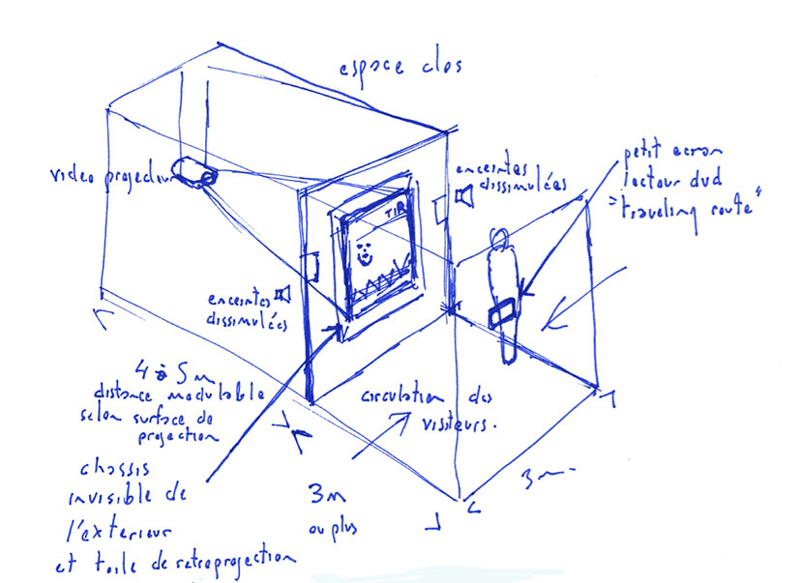 espace clos
video projecteur
enceintes
dissimulées
petit ecran
lecteur dvd
"traveling route"
TIR
enceintes
dissimulées
4 à 5 m
distance modulable
selon surface de
projection
circulation des
visiteurs.
chassis
invisible de
l'exterieur
et toile de retroprojection
3m
ou plus
3m